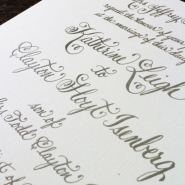 request the honour of your
at the marriage of their daughter
Katherine Leigh
to
Clayton Hoyt Isenberg
son of
Todd Clayton